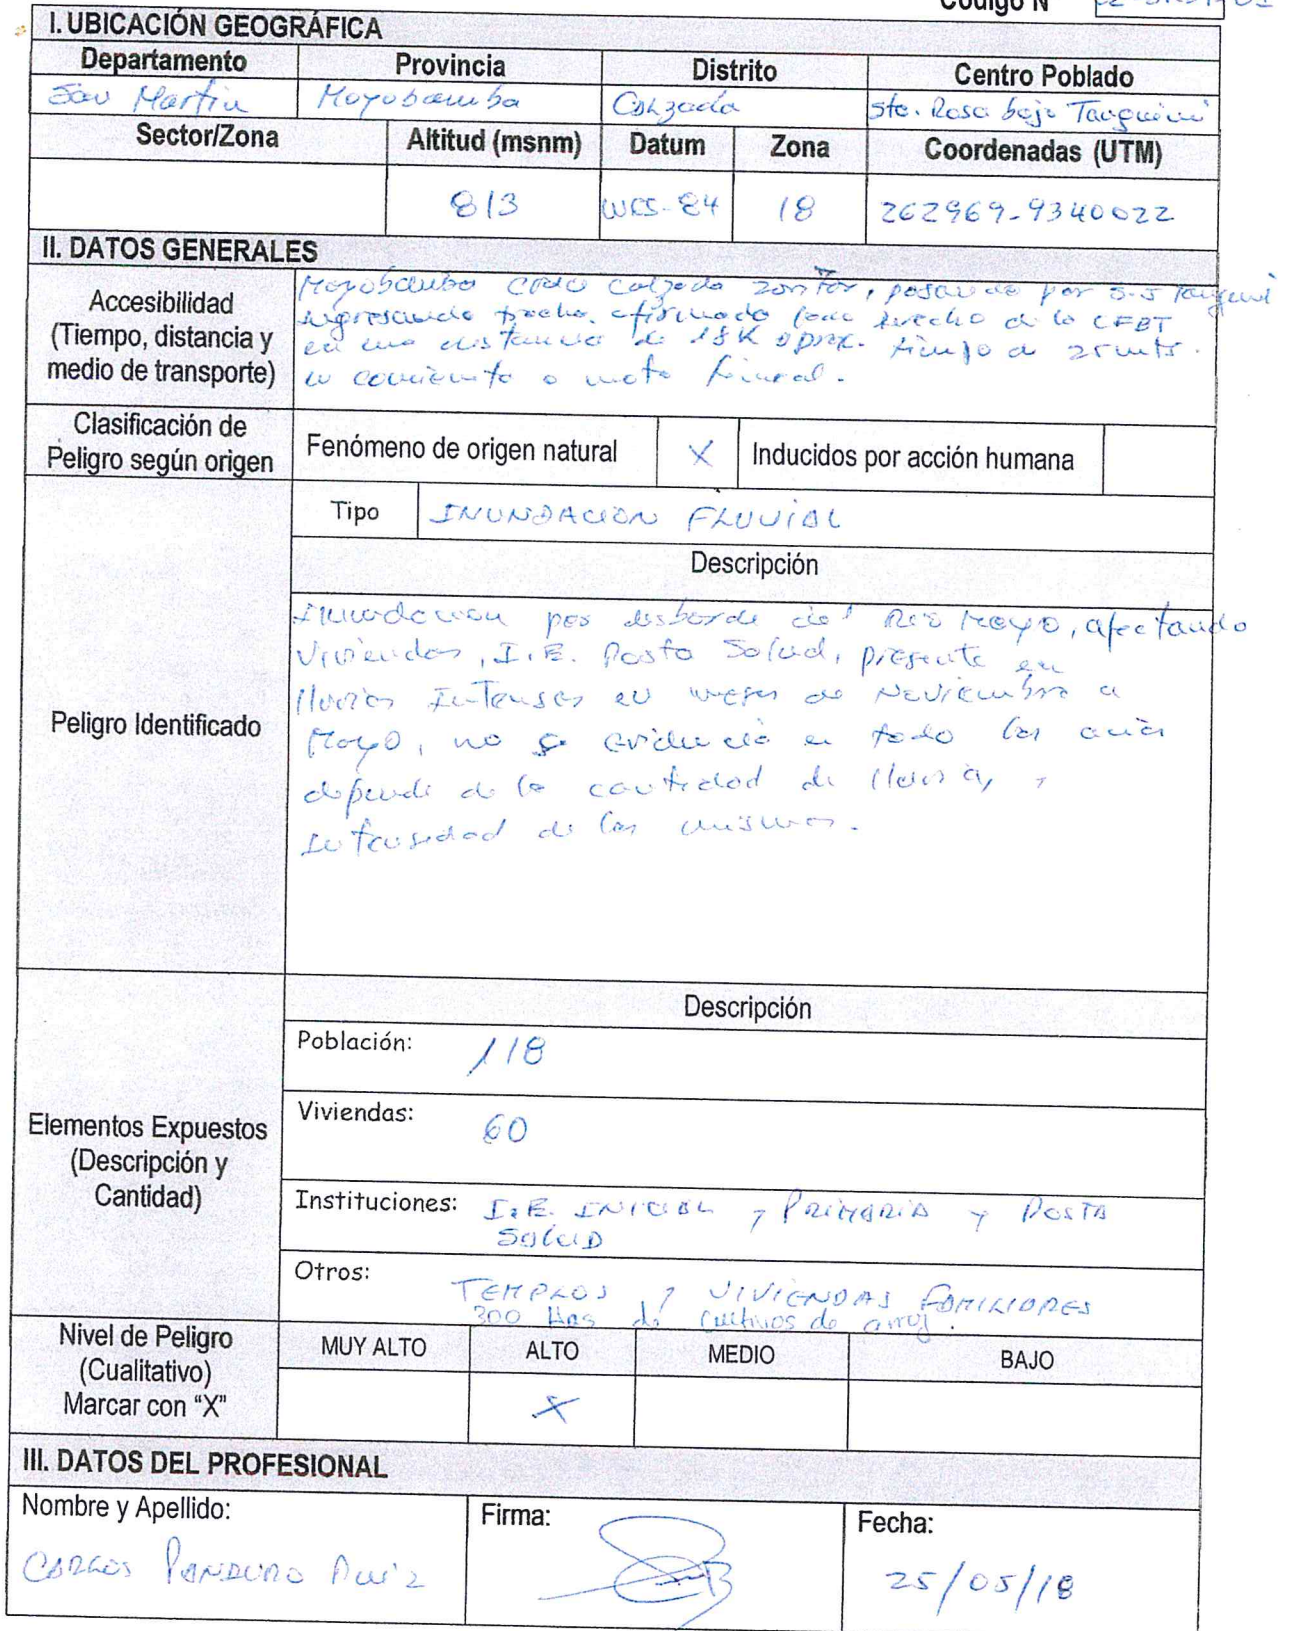 Código N°
I. UBICACIÓN GEOGRÁFICA
Departamento Provincia Distrito Centro Poblado
San Martin Moyobamba Calzada Sta. Rosa bajo Tangumi
Sector/Zona Altitud (msnm) Datum Zona Coordenadas (UTM)
813 WGS-84 18 262969-9340022
II. DATOS GENERALES
Accesibilidad
(Tiempo, distancia y
medio de transporte)
Moyobamba calzada pasando por
afirmado de la
en una distancia de 18K aprox. tiempo de 25 mts.
camioneta o moto lineal.
Clasificación de
Peligro según origen
Fenómeno de origen natural X Inducidos por acción humana
Peligro Identificado
Tipo INUNDACION FLUVIAL
Descripción
Inundacion por desborde del Rio Mayo, afectando
Viviendas, I.E. Posta Salud, presente en
lluvias Intensas en meses de Noviembre a
Mayo, no se evidencia en todo los años
depende de la cantidad de lluvia y
Intensidad de las mismas.
Elementos Expuestos
(Descripción y
Cantidad)
Descripción
Población: 118
Viviendas: 60
Instituciones: I.E. INICIAL y PRIMARIA y POSTA
SALUD
Otros: TEMPLOS y VIVIENDAS FAMILIARES
300 Has de cultivos de arroz.
Nivel de Peligro
(Cualitativo)
Marcar con “X”
MUY ALTO ALTO MEDIO BAJO
X
III. DATOS DEL PROFESIONAL
Nombre y Apellido: Firma: Fecha:
CARLOS PANDURO Ruiz 25/05/18